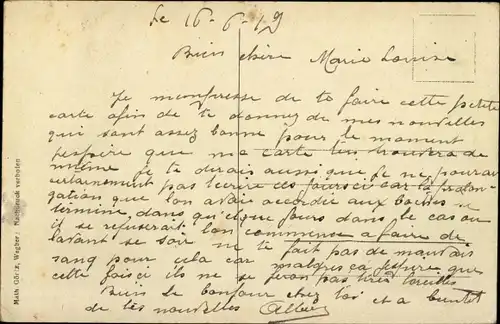 Le 16-6-19
Bien chère Marie Louise
Je m'empresse de te faire cette petite
carte afin de te donner de mes nouvelles
qui sont assez bonne pour le moment
j'espère que ma carte te trouvera de
même je te dirais aussi que je ne pourrai
certainement pas t'ecrire ces jours ci car la prolon
gation que l'on avais accordée aux boches se
termine dans quelque jours dans le cas ou
il se refuserait l'on commence a faire de
avant se soir ne te fait pas de mauvais
sang pour cela car malgres ça j'espère que
cette fois ci ils ne se feron pas tirer l'oreilles
Bien le bonjour chez toi et a bientot
de tes nouvelles Albert
Math. Göritz, Wegberg Nachdruck verboten